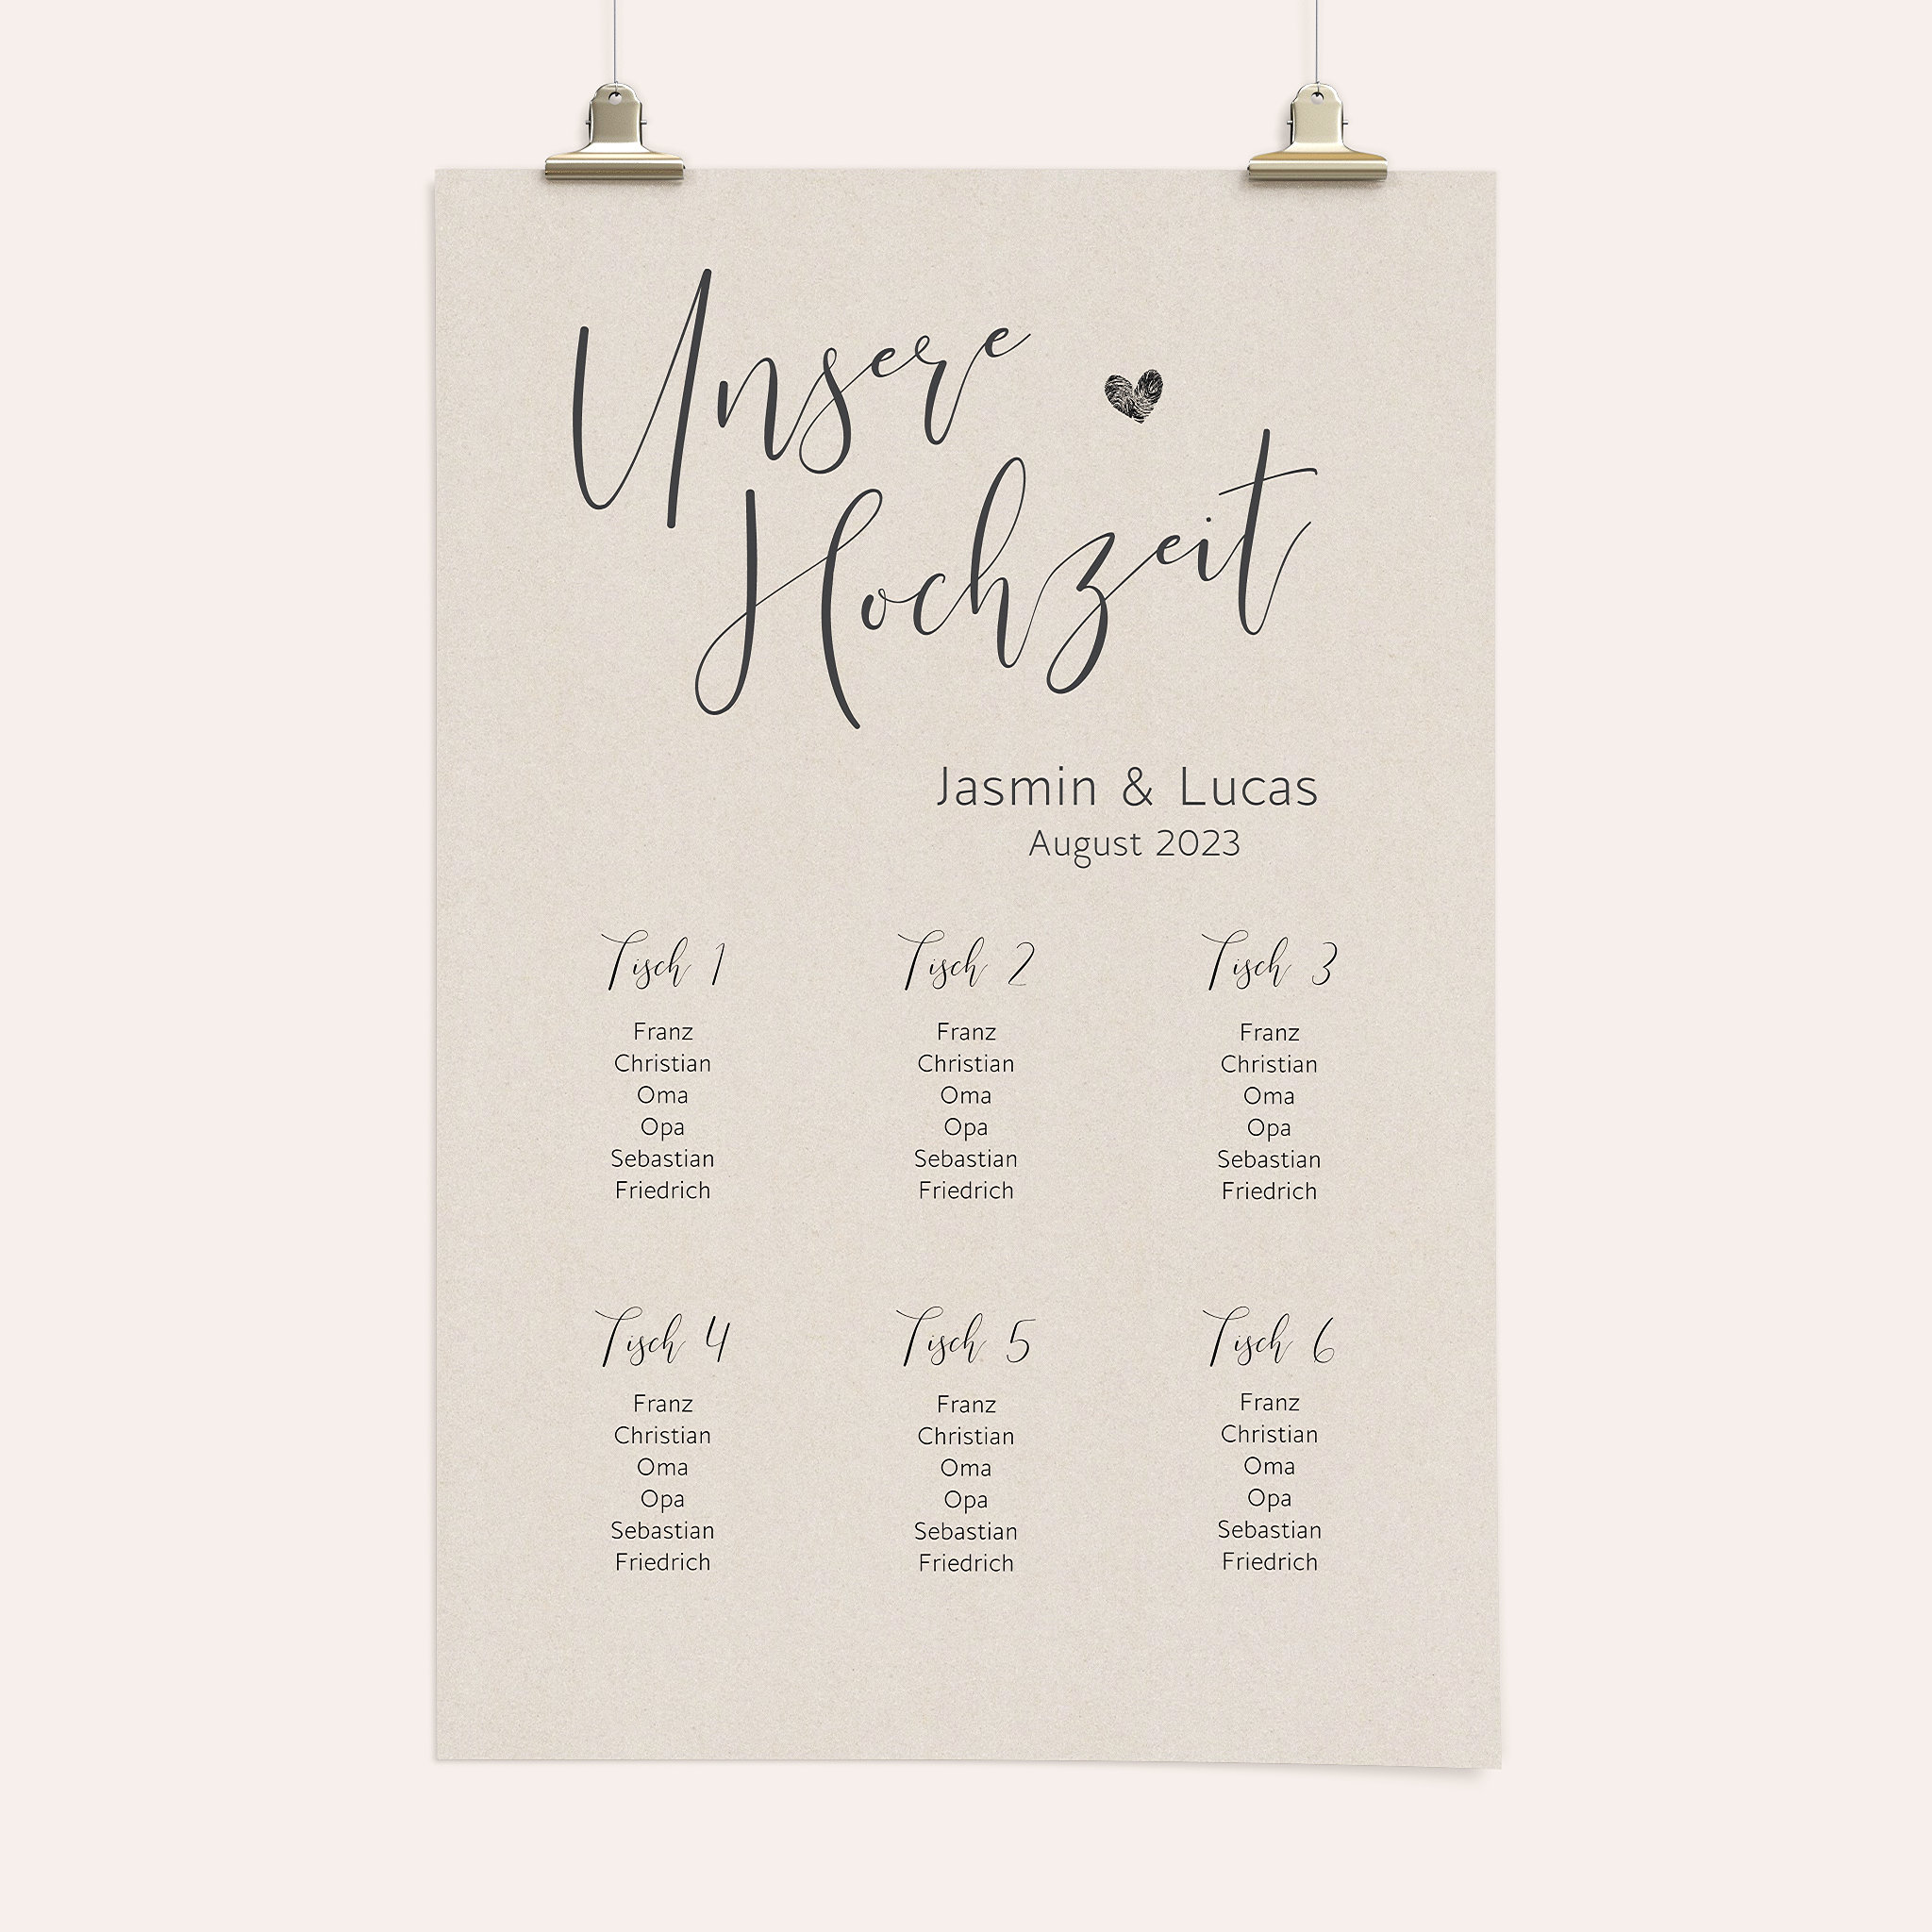 Unsere
Hochzeit
Jasmin & Lucas
August 2023
Tisch 1
Franz
Christian
Oma
Opa
Sebastian
Friedrich
Tisch 2
Franz
Christian
Oma
Opa
Sebastian
Friedrich
Tisch 3
Franz
Christian
Oma
Opa
Sebastian
Friedrich
Tisch 4
Franz
Christian
Oma
Opa
Sebastian
Friedrich
Tisch 5
Franz
Christian
Oma
Opa
Sebastian
Friedrich
Tisch 6
Franz
Christian
Oma
Opa
Sebastian
Friedrich